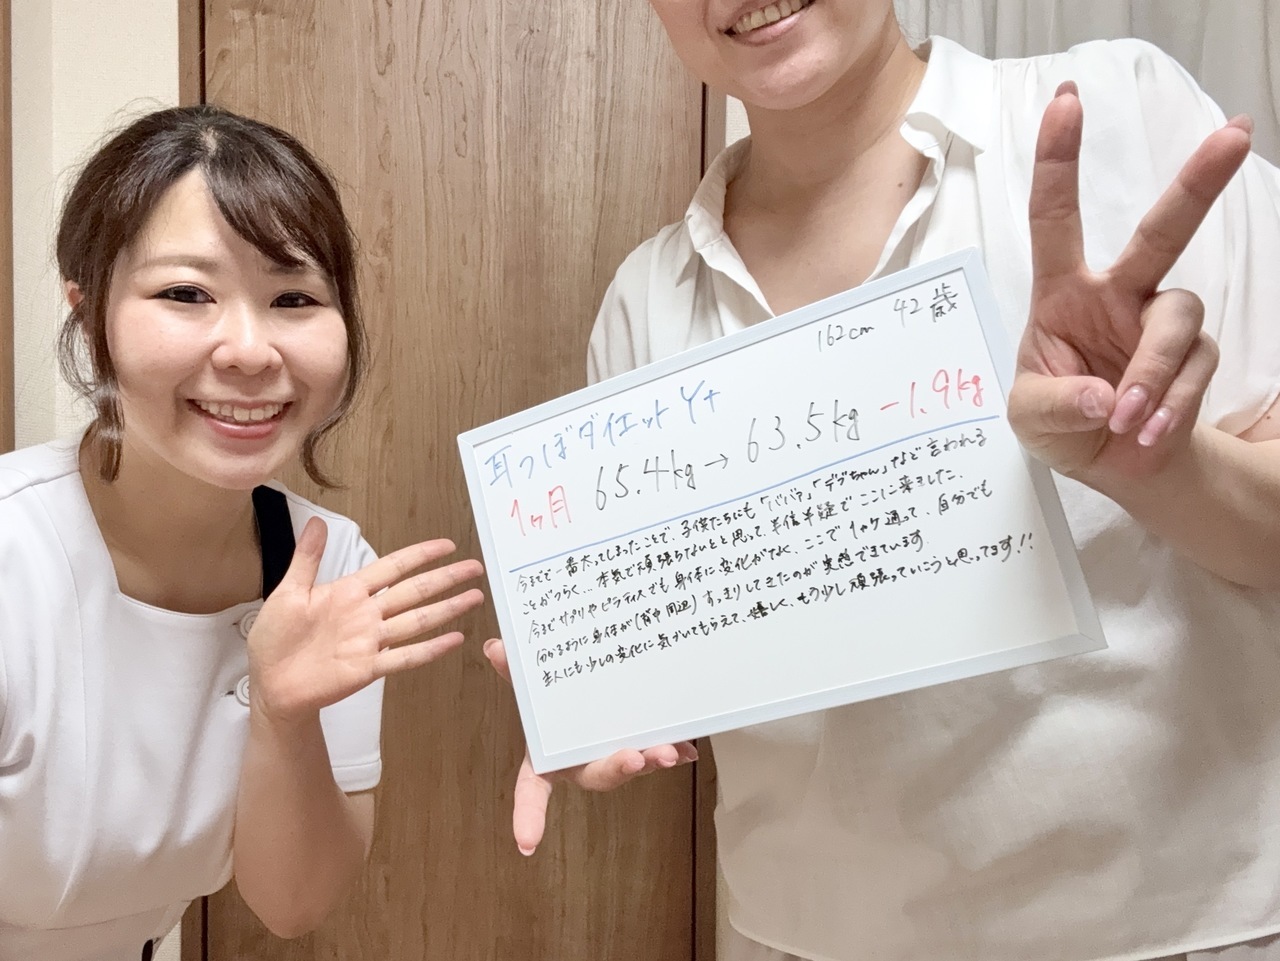 162cm 42歳
耳つぼダイエット Y+
1ヶ月 65.4kg → 63.5kg -1.9kg
今までで一番太ってしまったことで、子供たちにも「ババァ」「デブちゃん」などと言われる
ことがつらく... 本気で頑張らないとと思って、半信半疑でここに来ました。
今までサプリやピラティスでも身体に変化がでなく、ここで1ヶ月通って、自分でも
分かるように身体が(背中周辺)すっきりしてきたのが実感できています。
主人にも少しの変化に気づいてもらえて、嬉しく、もう少し頑張っていこうと思ってます!!